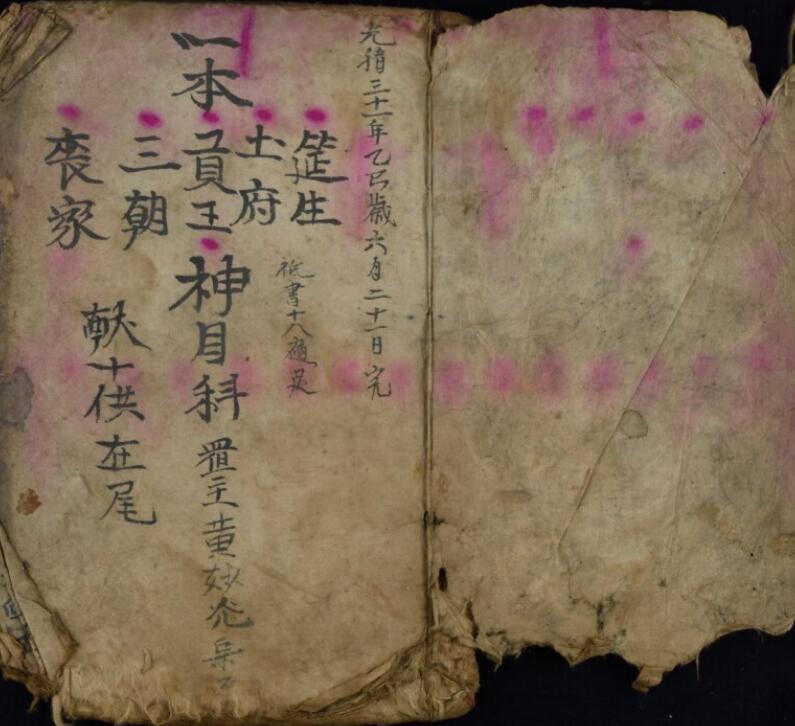 光緒三十一年乙巳歲六月二十一日完
筵生
書十八
土府
一本貢王神目科置主黄妙
三朝
喪家
献十供在尾